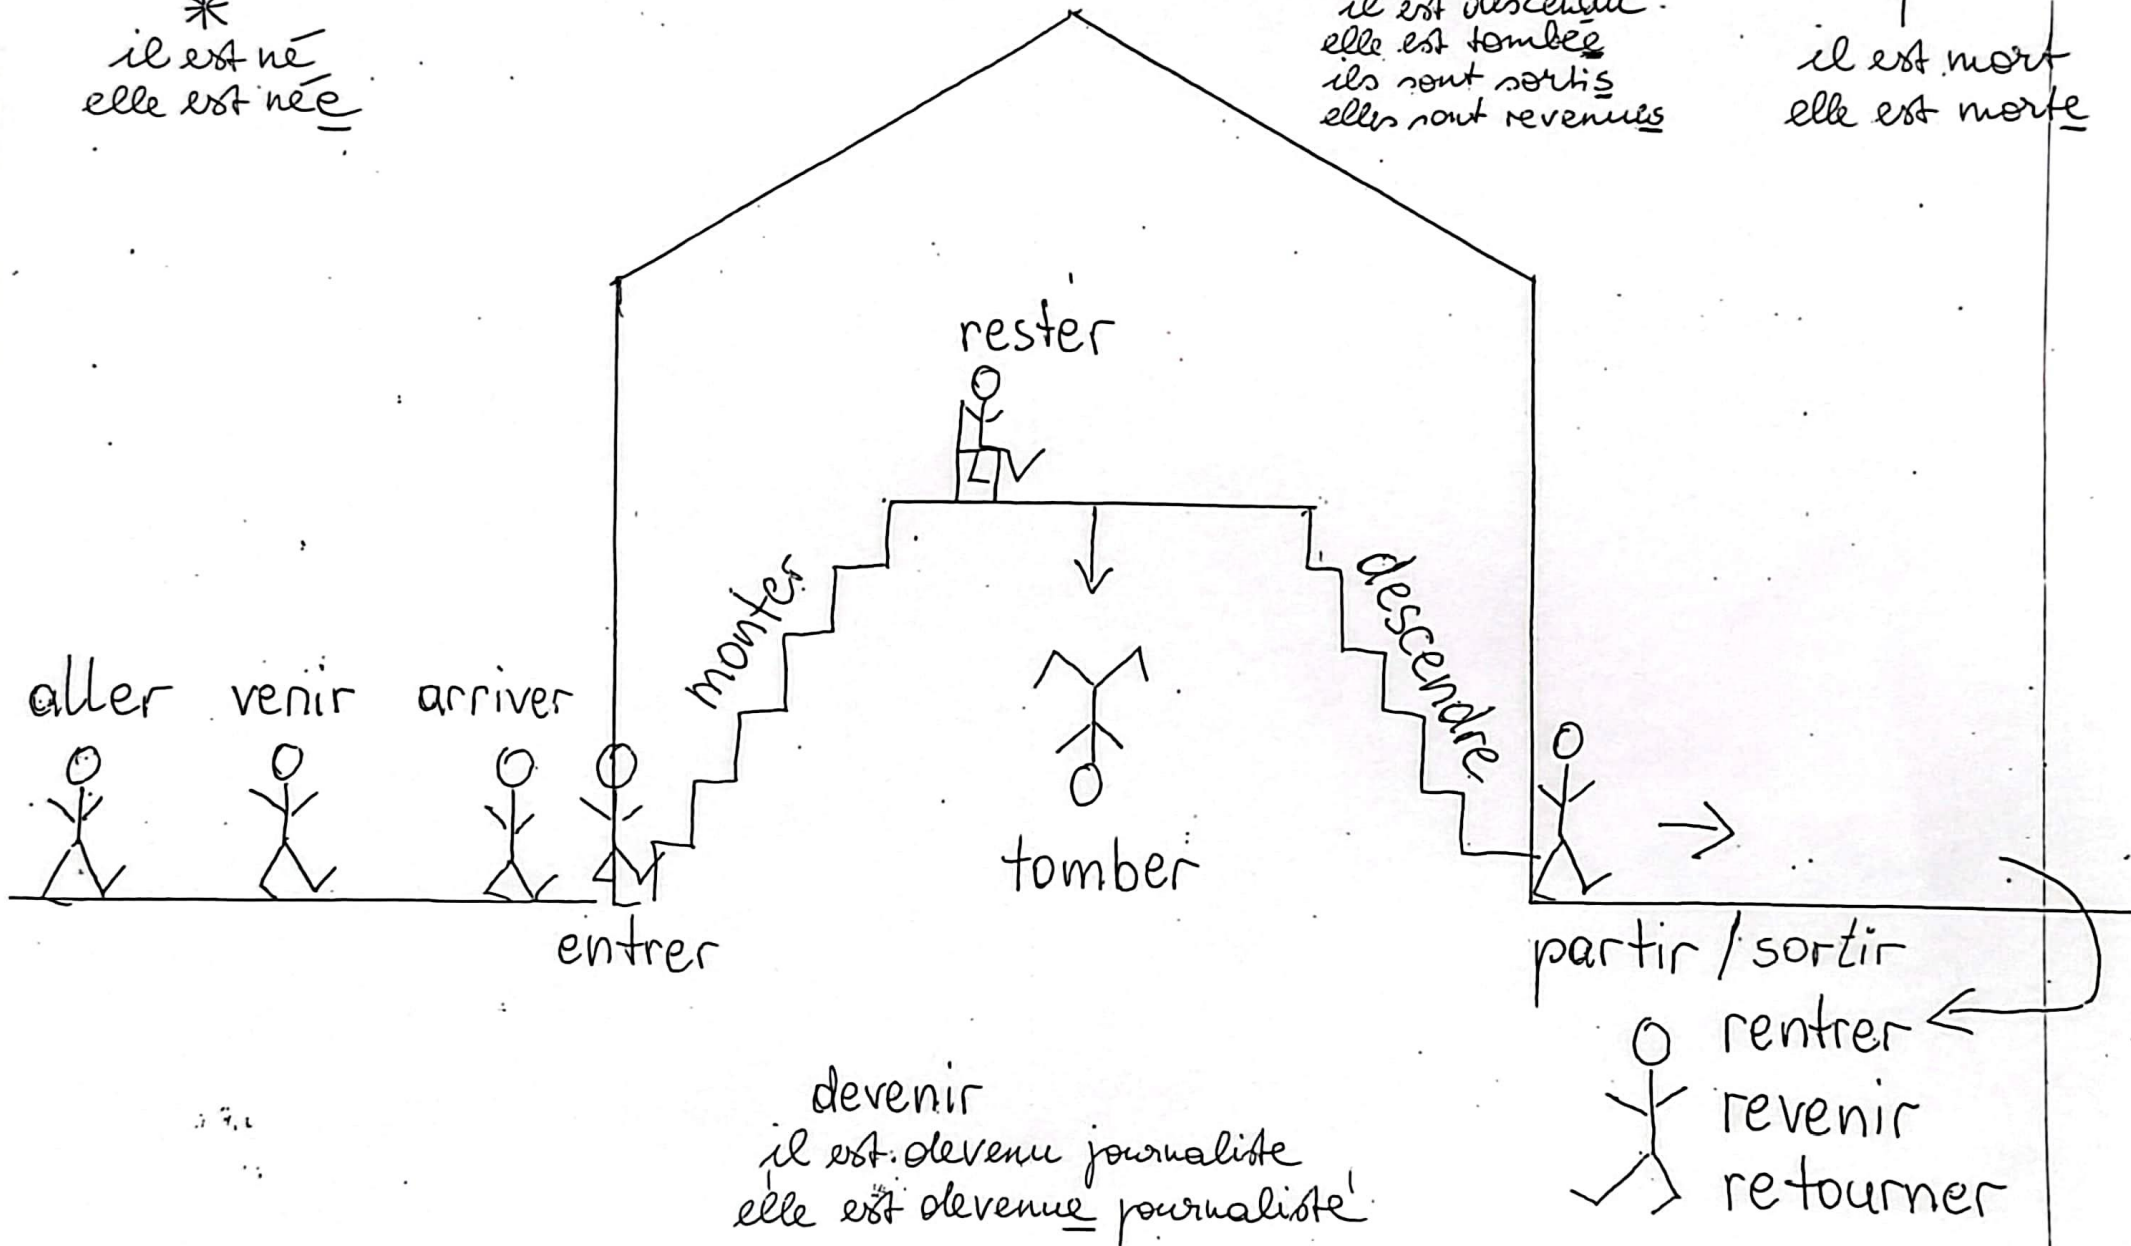 il est né
elle est née
il est descendu
elle est tombée
ils sont sortis
elles sont revenues
il est mort
elle est morte
rester
monter
descendre
aller venir arriver
tomber
entrer
partir / sortir
rentrer
revenir
retourner
devenir
il est devenu journaliste
elle est devenue journaliste